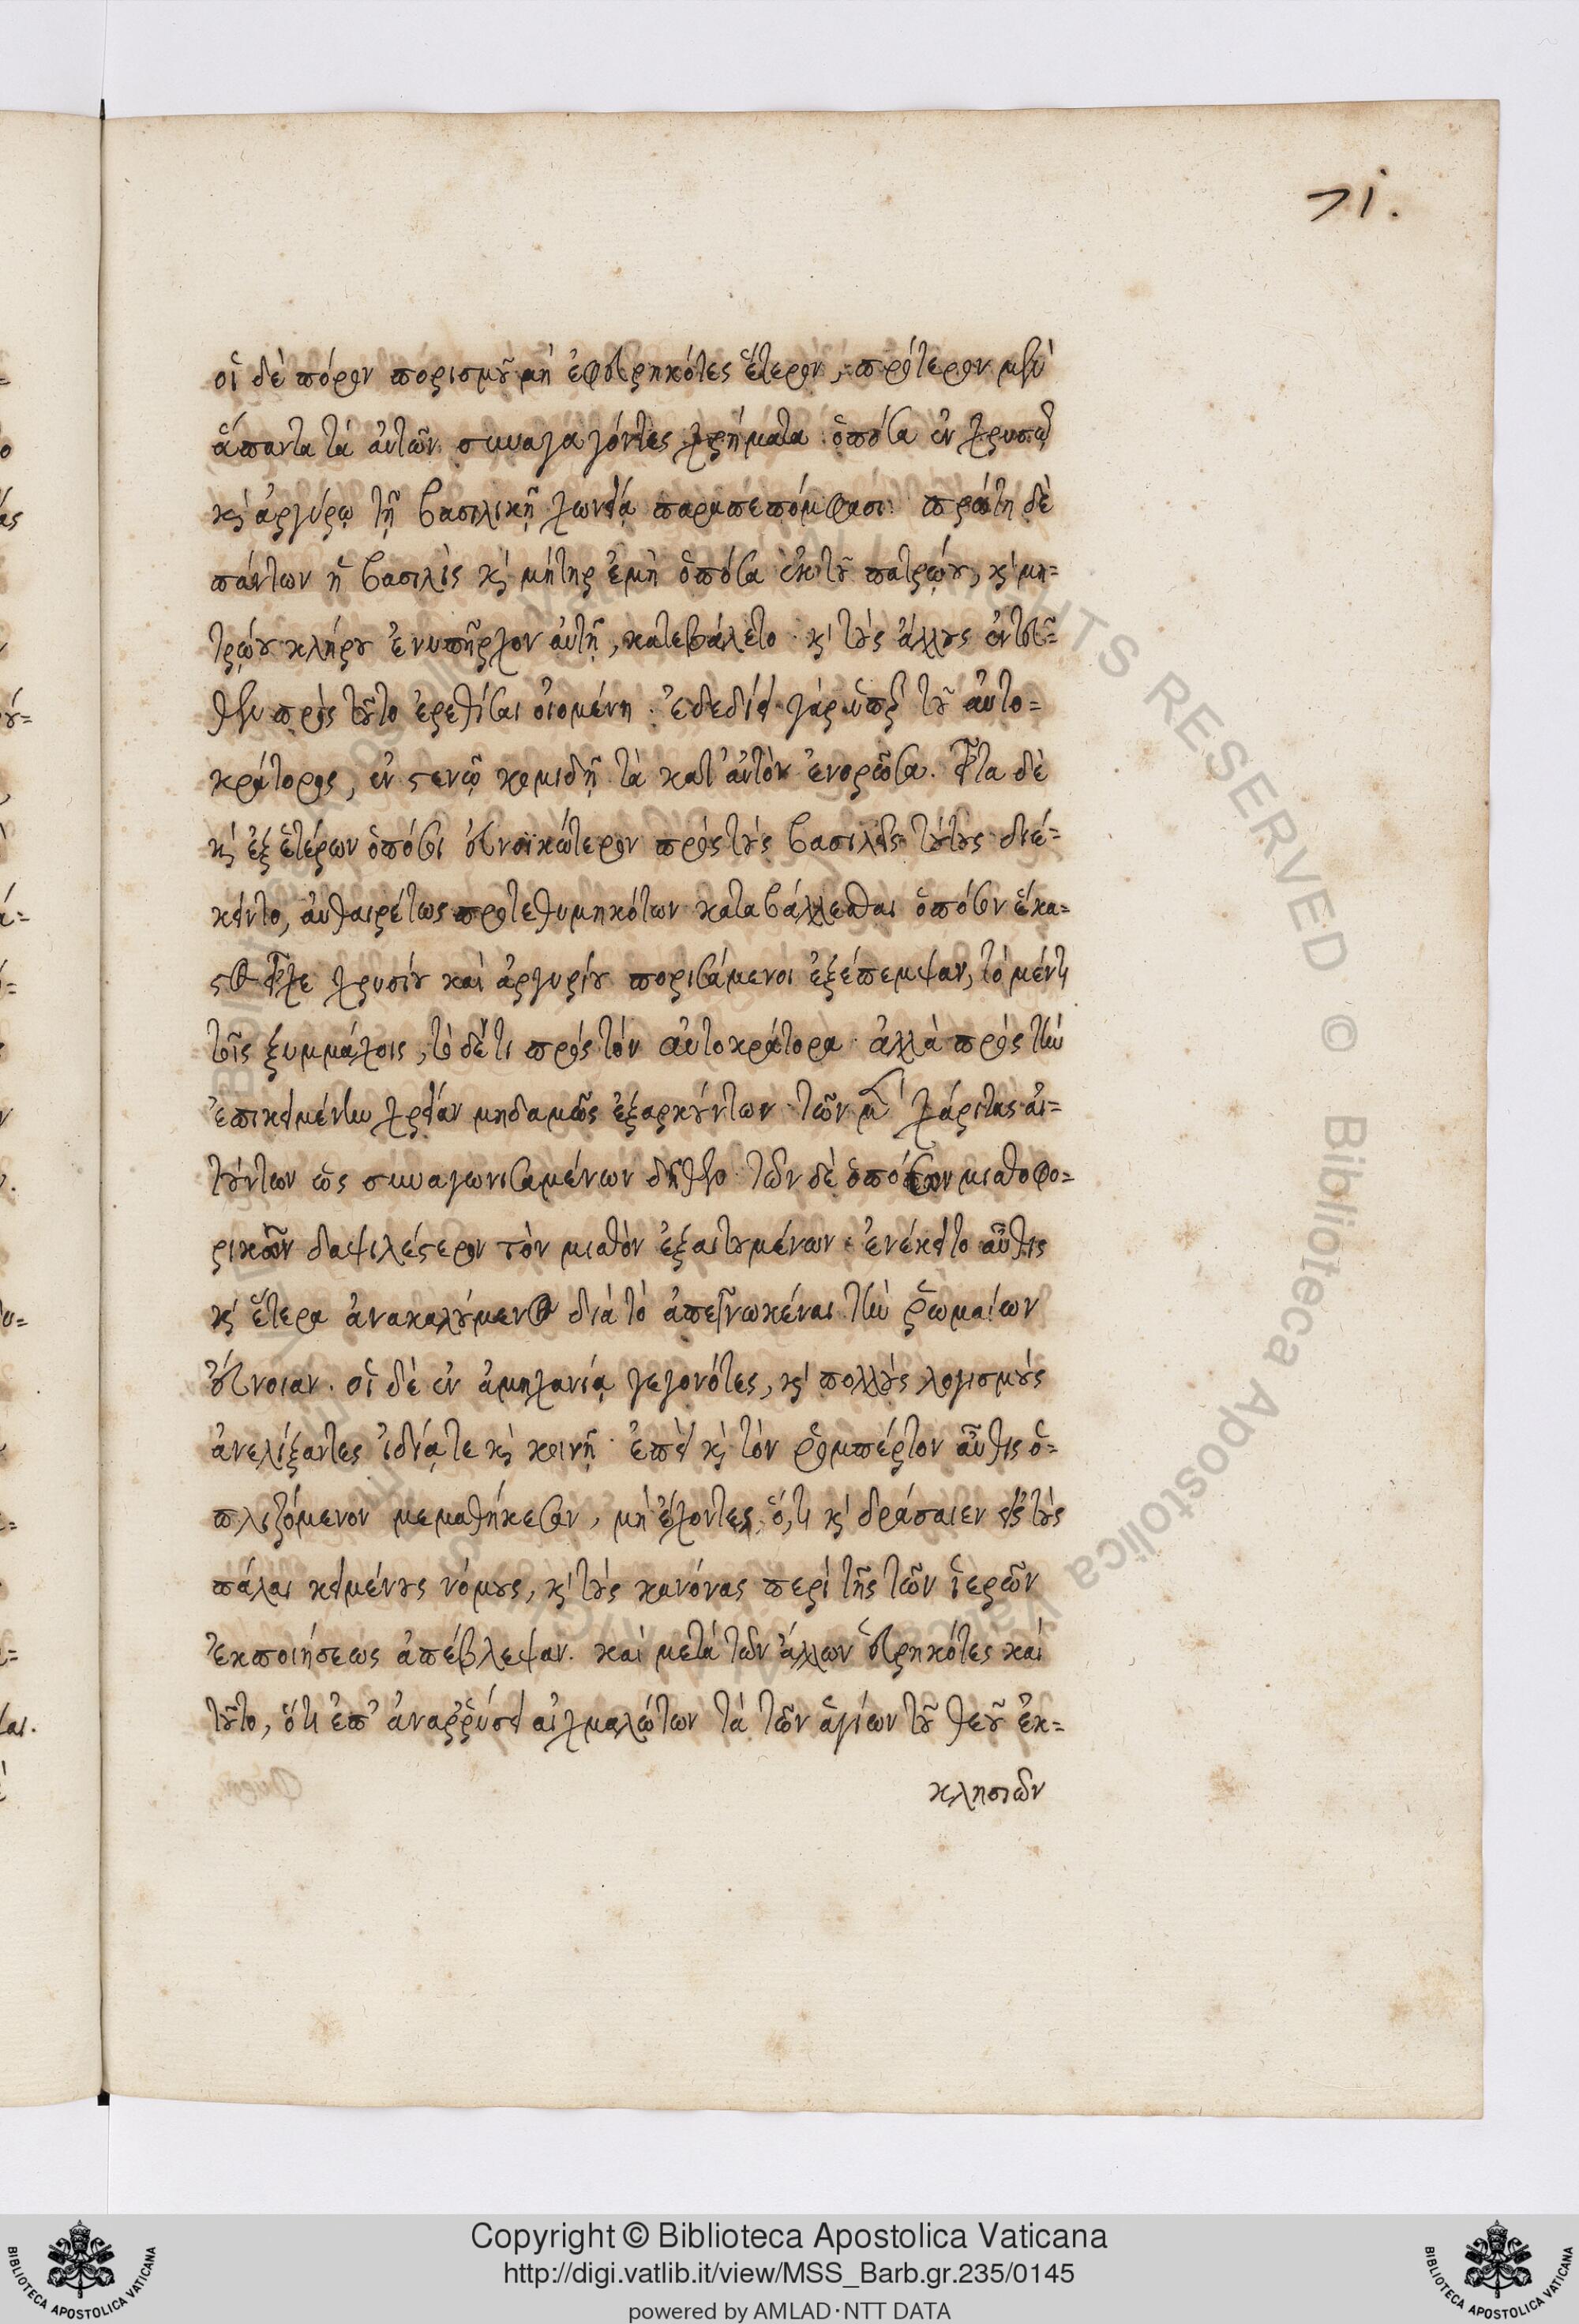 71.
οἱ δὲ πόρον πορισμοῦ μὴ ἐφευρηκότες ἕτερον, πρότερον μὲν
ἅπαντα τὰ αὐτῶν συναγαγόντες χρήματα ὁπόσα ἐν χρυσῷ
καὶ ἀργύρῳ τῇ βασιλικῇ χωνείᾳ παραπεπόμφασι. πρώτη δὲ
πάντων ἡ βασιλὶς καὶ μήτηρ ἐμὴ ὁπόσα ἐκ τοῦ πατρῴου, καὶ μη=
τρῴου κλήρου ἐνυπῆρχον αὐτῇ, κατεβάλετο. καὶ τοὺς ἄλλους ἐντεῦ=
θεν πρὸς τοῦτο ἐρεθίσαι οἰομένη. ἐδεδίει γὰρ ὑπὲρ τοῦ αὐτο=
κράτορος, ἐν στενῷ κομιδῇ τὰ κατ' αὐτὸν ἐνορῶσα. εἶτα δὲ
καὶ ἐξ ἑτέρων ὁπόσοι εὐνοϊκώτερον πρὸς τοὺς βασιλεῖς τούτους διέ=
κειντο, αὐθαιρέτως προτεθυμηκότων καταβάλλεσθαι ὁπόσον ἕκα=
στος εἶχε χρυσίου καὶ ἀργυρίου πορισάμενοι ἐξέπεμψαν, τὸ μέντι
τοῖς ξυμμάχοις, τὸ δέ τι πρὸς τὸν αὐτοκράτορα. ἀλλὰ πρὸς τὴν
ἐπικειμένην χρείαν μηδαμῶς ἐξαρκούντων τῶν μὲν χάριτας αἰ=
τούντων ὡς συναγωνισαμένων δῆθεν τῶν δὲ ὁπόσον μισθοφο=
ρικῶν δαψιλέστερον τὸν μισθὸν ἐξαιτουμένων. ἐνέκειτο αὖθις
καὶ ἕτερα ἀνακαλούμενος διὰ τὸ ἀπεγνωκέναι τὴν ῥωμαίων
εὔνοιαν. οἱ δὲ ἐν ἀμηχανίᾳ γεγονότες, καὶ πολλοὺς λογισμοὺς
ἀνελίξαντες ἰδίᾳ τε καὶ κοινῇ. ἐπεὶ καὶ τὸν ῥομπέρτον αὖθις ὁ=
πλιζόμενον μεμαθήκεσαν, μὴ ἔχοντες, ὅ,τι καὶ δράσαιεν εἰς τοὺς
πάλαι κειμένους νόμους, καὶ τοὺς κανόνας περὶ τῆς τῶν ἱερῶν
ἐκποιήσεως ἀπέβλεψαν. καὶ μετὰ τῶν ἄλλων εὑρηκότες καὶ
τοῦτο, ὅτι ἐπ' ἀναῤῥύσει αἰχμαλώτων τὰ τῶν ἁγίων τοῦ θεοῦ ἐκ=
κλησιῶν
Copyright © Biblioteca Apostolica Vaticana
http://digi.vatlib.it/view/MSS_Barb.gr.235/0145
powered by AMLAD·NTT DATA